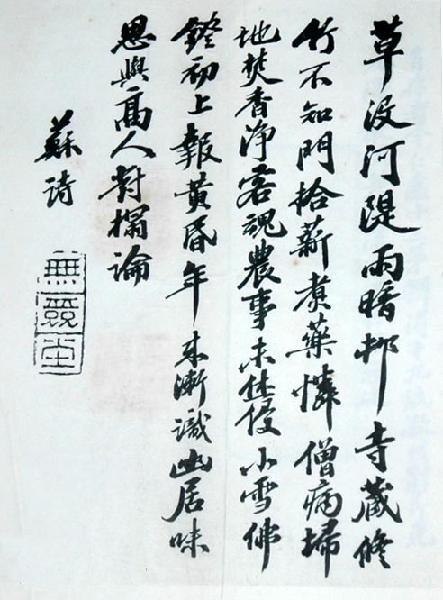 草没河隄雨暗邨寺藏脩
竹不知門拾薪煑藥憐僧病埽
地焚香淨客魂農事未休侵小雪佛
鐙初上報黃昏年來漸識幽居味
思與高人對榻論
蘇詩
無競室